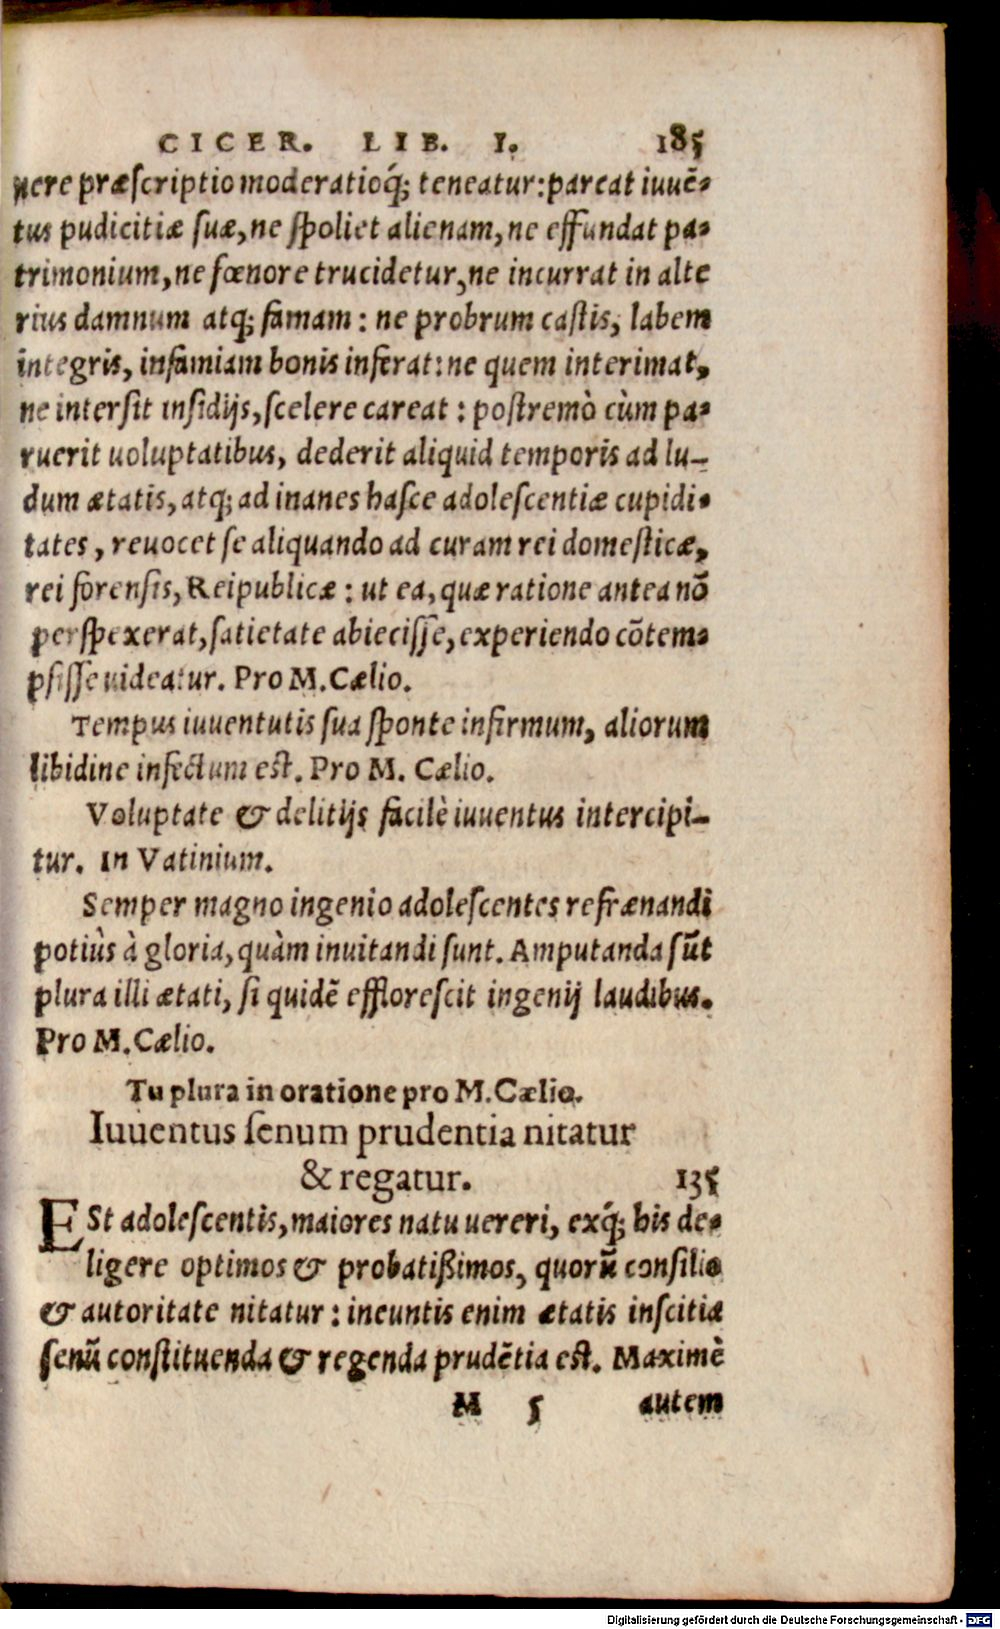 CICER. LIB. I. 185
nere præscriptio moderatioq́; teneatur: pareat iuuē-
tus pudicitiæ suæ, ne spoliet alienam, ne effundat pa-
trimonium, ne fœnore trucidetur, ne incurrat in alte
rius damnum atq; famam: ne probrum castis, labem
integris, infamiam bonis inferat: ne quem interimat,
ne intersit insidijs, scelere careat: postremò cùm pa-
ruerit uoluptatibus, dederit aliquid temporis ad lu-
dum ætatis, atq; ad inanes hasce adolescentiæ cupidi-
tates, reuocet se aliquando ad curam rei domesticæ,
rei forensis, Reipublicæ: ut ea, quæ ratione antea nō
perspexerat, satietate abiecisse, experiendo cōtem-
psisse uideatur. Pro M. Cælio.
Tempus iuuentutis sua sponte infirmum, aliorum
libidine infectum est. Pro M. Cælio.
Voluptate & delitijs facilè iuuentus intercipi-
tur. In Vatinium.
Semper magno ingenio adolescentes refrænandi
potiùs à gloria, quàm inuitandi sunt. Amputanda sūt
plura illi ætati, si quidē efflorescit ingenij laudibus.
Pro M. Cælio.
Tu plura in oratione pro M. Cælio.
Iuuentus senum prudentia nitatur
& regatur. 135
ESt adolescentis, maiores natu uereri, exq́; his de-
ligere optimos & probatißimos, quorū consilio
& autoritate nitatur: ineuntis enim ætatis inscitia
senū constituenda & regenda prudētia est. Maximè
M 5 autem
Digitalisierung gefördert durch die Deutsche Forschungsgemeinschaft - DFG